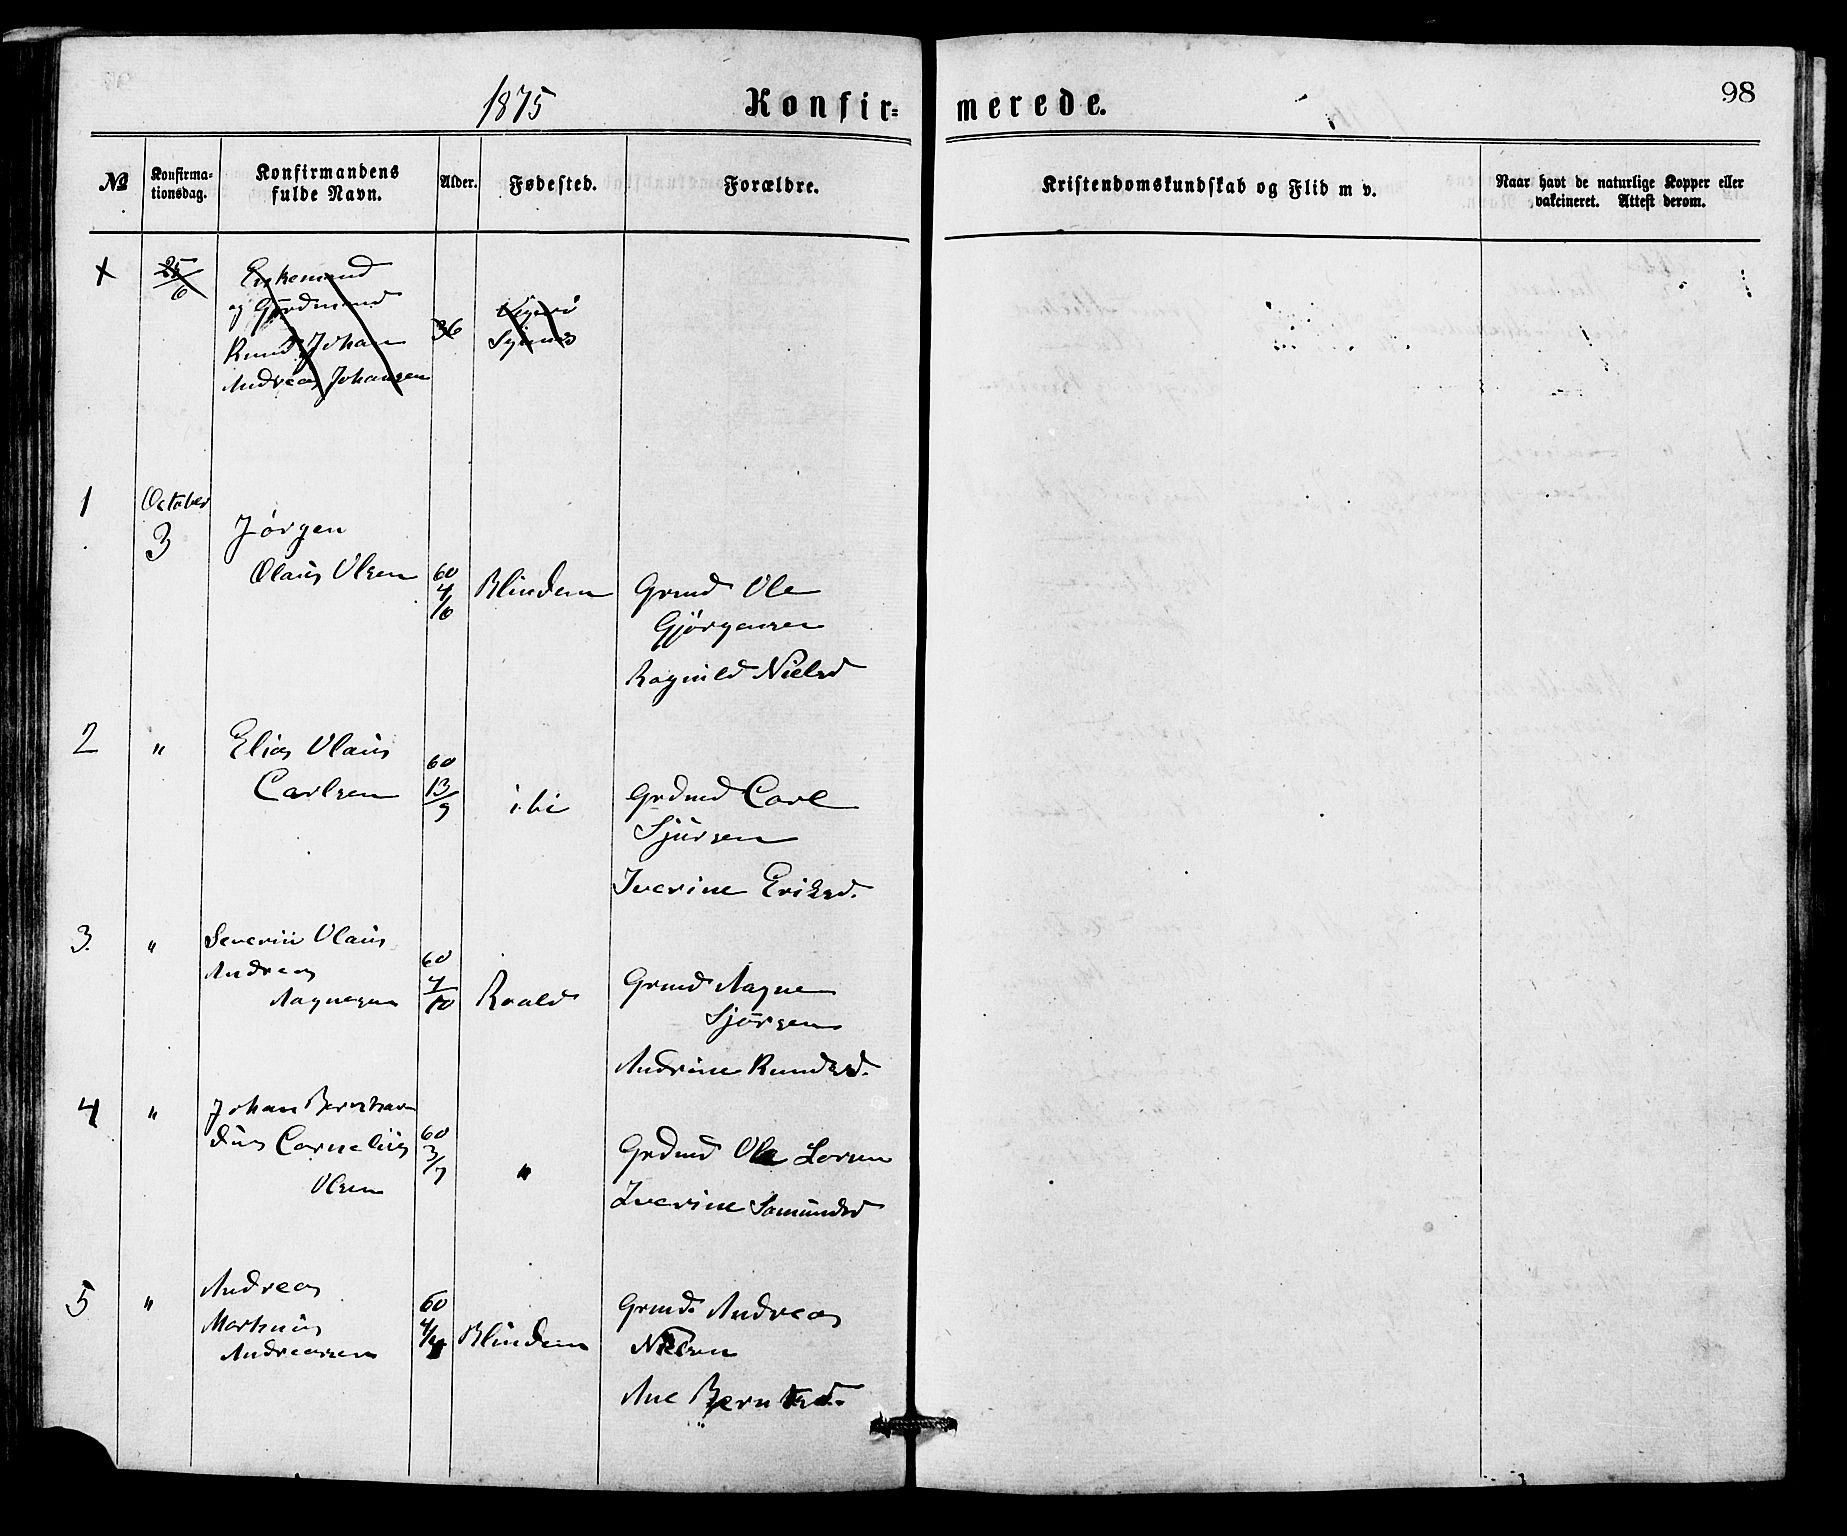 1875 Konfir=merede. 98
№ Konfirma-tionsdag. Konfirmandens fulde Navn. Alder. Fødested. Forældre. Kristendomskundskab og Flid m v. Naar havt de naturlige Kopper eller vakcineret. Attest derom.
25/6 Enkemand
og Gårdmand
Knud Johan 36
Andreas Johansen
1 October
3 Jørgen
Olaus Olsen 60 4/10 Blindem Grmd Ole
Gjørgensen
Ragnild Nielsd
2 " Elias Olaus
Carlsen 60 13/9 ibi Grdmd Carl
Sjursen
Iverine Eriksd.
3. " Severin Olaus
Andreas
Aagnesen 60 4/10 Roald Grmd Aagne
Sjørsen
Andrine Knudsd.
4 " Johan Bernhar
dus Cornelius 60 3/7 " Grdmd Ole Larsen
Olsen
Iverine Samundsd
5 " Andreas
Martinus
Andreassen 60 Blindem Grmd. Andreas
Nielsen
Ane Berntsd.